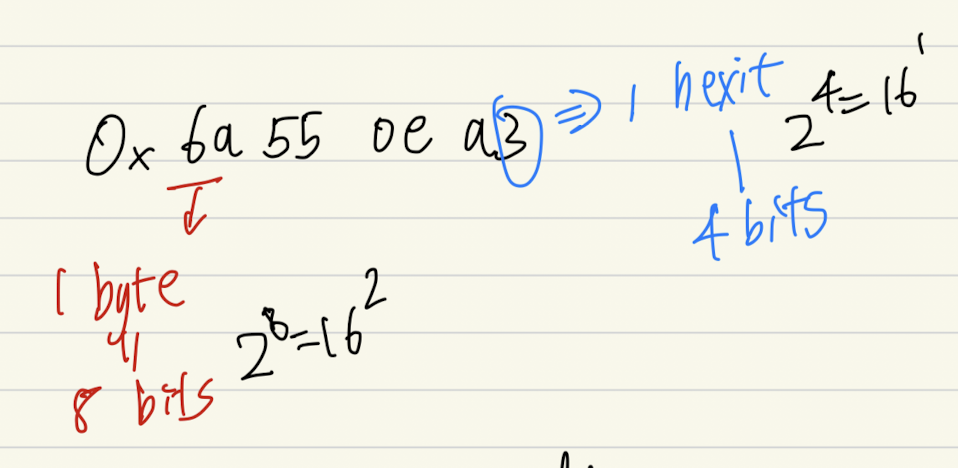 0x 6a 55 0e a3 ⇒ 1 hexit 2^4=16^1
4 bits
1 byte
8 bits 2^8=16^2